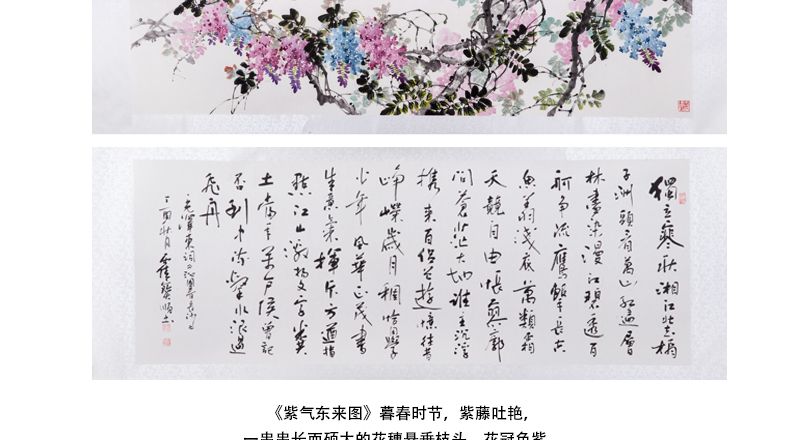 獨立寒秋湘江北去橘
子洲頭看萬山紅遍層
林盡染漫江碧透百
舸争流鷹擊長空
魚翔淺底萬類霜
天競自由悵寥廓
问蒼茫大地谁主沉浮
携来百侣曾遊憶往昔
崢嶸歲月稠恰同學
少年風華正茂書
生意氣揮斥方遒指
點江山激揚文字糞
土當年萬户侯曾記
否到中流擊水浪遏
飛舟
毛澤東词沁園春長沙
丁酉秋月
《紫气东来图》暮春时节，紫藤吐艳，
一串串长而硕大的花穗悬垂枝头，花冠色紫